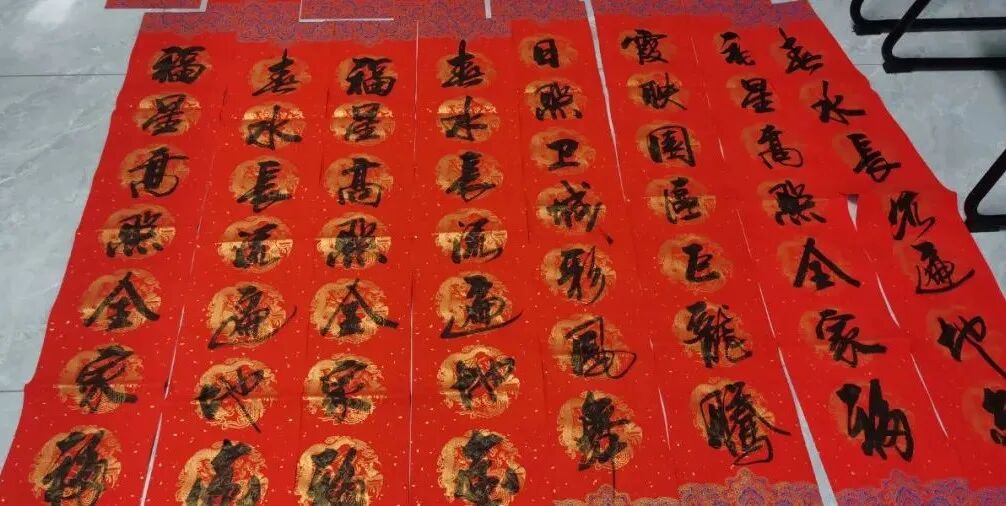 福星高照全家福
春水長流遍地春
福星高照全家福
春水長流遍地春
日照卫城彩鳳舞
霞映園區巨龍騰
星高照全家福
春水長流遍地